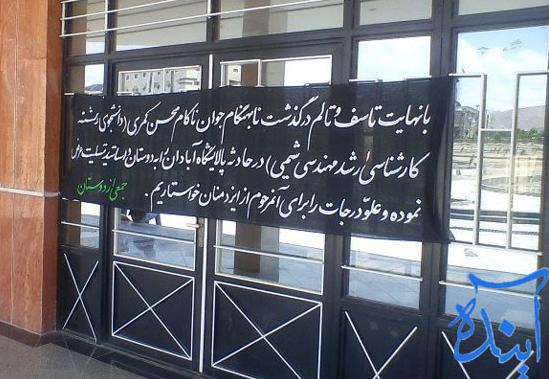 بانهایت تاسف و تالم درگذشت نابهنگام جوان ناکام محسن کمری (دانشجوی رشته
کارشناسی ارشد مهندسی شیمی) در حادثه پالایشگاه آبادان را به دوستان و اساتید تسلیت عرض
نموده و علو درجات را برای آنمرحوم از ایزد منان خواستاریم.
جمعی از دوستان
آینده